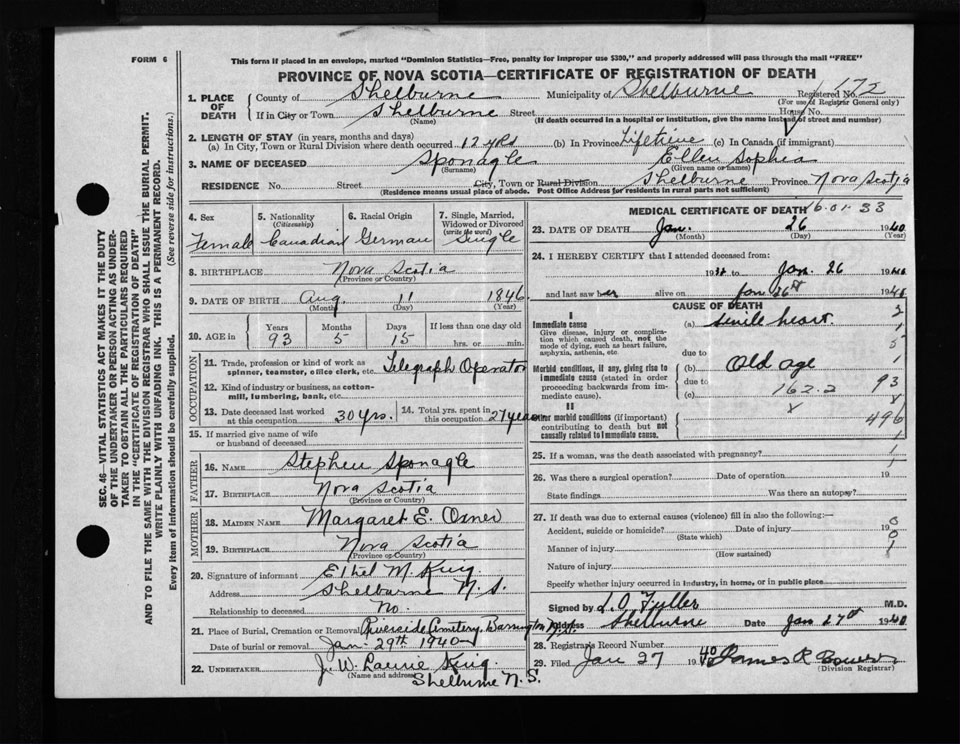 FORM 6
This form if placed in an envelope, marked "Dominion Statistics—Free, penalty for improper use $300," and properly addressed will pass through the mail "FREE"
PROVINCE OF NOVA SCOTIA—CERTIFICATE OF REGISTRATION OF DEATH
SEC. 46—VITAL STATISTICS ACT MAKES IT THE DUTY
OF THE UNDERTAKER OR PERSON ACTING AS UNDER-
TAKER TO OBTAIN ALL THE PARTICULARS REQUIRED
IN THE "CERTIFICATE OF REGISTRATION OF DEATH"
AND TO FILE THE SAME WITH THE DIVISION REGISTRAR WHO SHALL ISSUE THE BURIAL PERMIT.
WRITE PLAINLY WITH UNFADING INK. THIS IS A PERMANENT RECORD.
Every item of information should be carefully supplied. (See reverse side for instructions.)
1. PLACE OF DEATH County of Shelburne Municipality of Shelburne Registered No. 172
(For use of Registrar General only)
If in City or Town Shelburne Street House No.
(Name) (If death occurred in a hospital or institution, give the name instead of street and number)
2. LENGTH OF STAY (in years, months and days)
(a) In City, Town or Rural Division where death occurred 12 yrs (b) In Province Lifetime (c) In Canada (if immigrant)
3. NAME OF DECEASED Sponagle Ellen Sophia
(Surname) (Given name or names)
RESIDENCE No. Street City, Town or Rural Division Shelburne Province Nova Scotia
(Residence means usual place of abode. Post Office Address for residents in rural parts not sufficient)
4. Sex Female
5. Nationality (Citizenship) Canadian
6. Racial Origin German
7. Single, Married, Widowed or Divorced (write the word) Single
8. BIRTHPLACE Nova Scotia
(Province or Country)
9. DATE OF BIRTH Aug. 11 1846
(Month) (Day) (Year)
10. AGE in Years 93 Months 5 Days 15 If less than one day old hrs. or min.
OCCUPATION
11. Trade, profession or kind of work as spinner, teamster, office clerk, etc. Telegraph Operator
12. Kind of industry or business, as cotton-mill, lumbering, bank, etc.
13. Date deceased last worked at this occupation 30 yrs.
14. Total yrs. spent in this occupation 27 years
15. If married give name of wife or husband of deceased
FATHER
16. NAME Stephen Sponagle
17. BIRTHPLACE Nova Scotia
(Province or Country)
MOTHER
18. MAIDEN NAME Margaret E. Oxner
19. BIRTHPLACE Nova Scotia
(Province or Country)
20. Signature of informant Ethel M. King
Address Shelburne N.S.
Relationship to deceased No.
21. Place of Burial, Cremation or Removal Riverside Cemetery, Barrington N.S.
Date of burial or removal Jan. 29th 1940
22. UNDERTAKER J. W. Laurie King.
(Name and address) Shelburne N.S.
MEDICAL CERTIFICATE OF DEATH 16.01.33
23. DATE OF DEATH Jan. 26 1940
(Month) (Day) (Year)
24. I HEREBY CERTIFY that I attended deceased from:
19 to Jan. 26 1940
and last saw her alive on Jan 26th 1940
CAUSE OF DEATH
I
Immediate cause
Give disease, injury or complication which caused death, not the mode of dying, such as heart failure, asphyxia, asthenia, etc
(a) senile heart.
due to
Morbid conditions, if any, giving rise to immediate cause (stated in order proceeding backwards from immediate cause).
(b) Old age
due to
(c) 162.2
II
Other morbid conditions (if important) contributing to death but not causally related to immediate cause.
93
496
25. If a woman, was the death associated with pregnancy?
26. Was there a surgical operation? Date of operation 19
State findings Was there an autopsy?
27. If death was due to external causes (violence) fill in also the following:—
Accident, suicide or homicide? Date of injury 19
(State which)
Manner of injury
(How sustained)
Nature of injury
Specify whether injury occurred in industry, in home, or in public place
Signed by L. O. Fuller M.D.
Address Shelburne Date Jan 27th 1940
28. Registrar's Record Number
29. Filed Jan 27 1940 James R Bower
(Division Registrar)